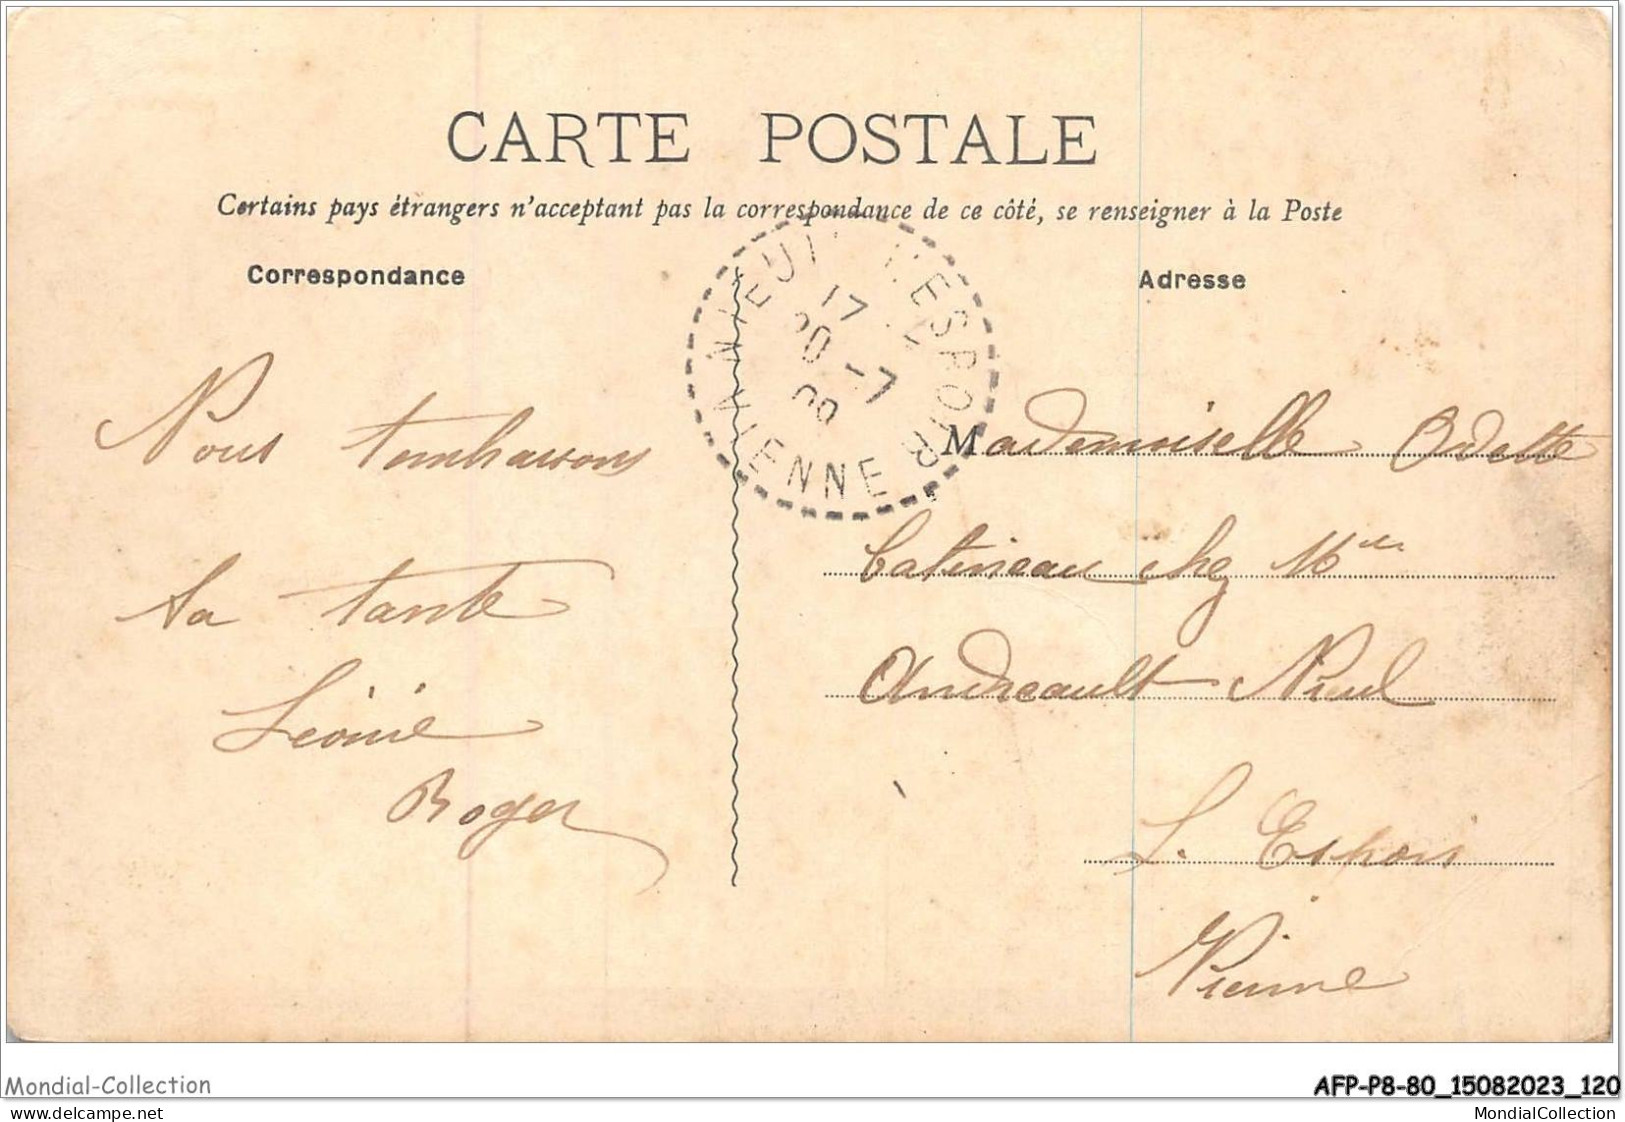 CARTE POSTALE
Certains pays étrangers n'acceptant pas la correspondance de ce côté, se renseigner à la Poste
Correspondance
Adresse
NIEUIL L'ESPOIR
17
20 -7
08
VIENNE
Nous t'embrassons
ta tante
Léonie
Roger
Mademoiselle Odette
Catineau chez Mlle
Andreault Nieul
L. Espoir
Vienne
Mondial-Collection
AFP-P8-80_15082023_120
www.delcampe.net
MondialCollection